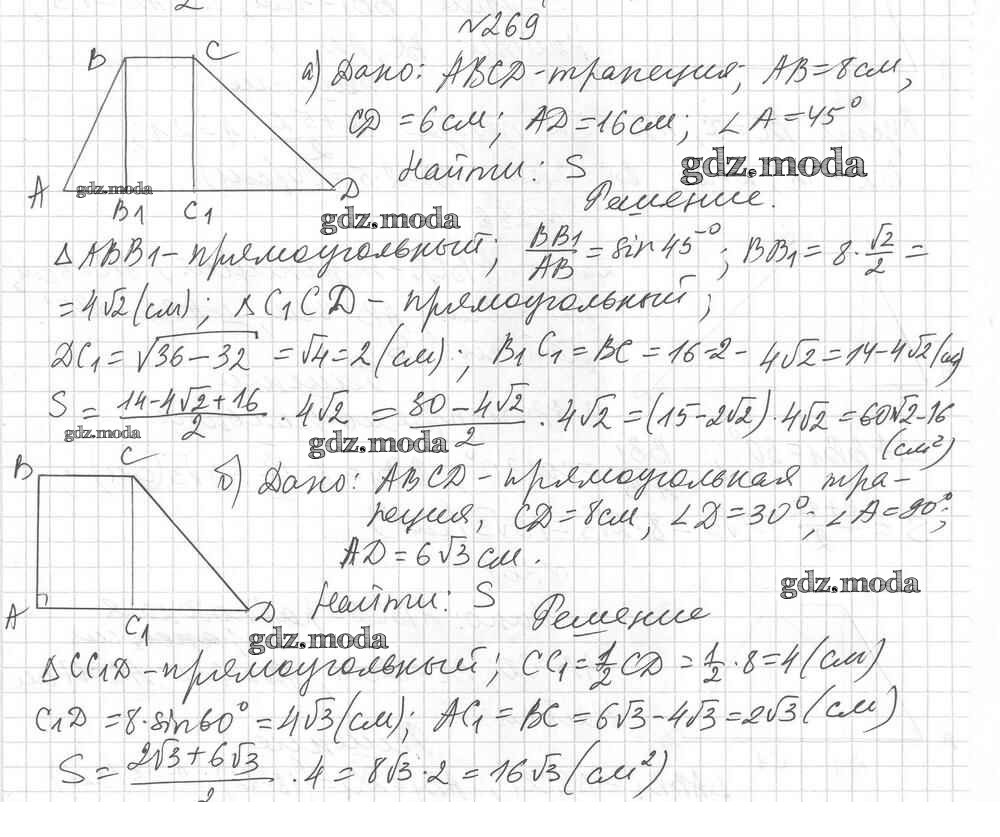 №269
B C
а) Дано: ABCD-трапеция; AB=8см,
CD=6см; AD=16см; ∠A=45°
Найти: S
gdz.moda
A gdz.moda D
B1 C1
gdz.moda
Решение.
△ABB1-прямоугольный; BB1/AB = sin 45°; BB1 = 8·√2/2 =
= 4√2 (см); △C1CD - прямоугольный;
DC1 = √36-32 = √4 = 2 (см); B1C1 = BC = 16-2- 4√2 = 14-4√2 (см)
S = 14-4√2+16/2 · 4√2 = 30-4√2/2 · 4√2 = (15-2√2)·4√2 = 60√2-16
(см²)
gdz.moda
gdz.moda
B C
б) Дано: ABCD-прямоугольная тра-
пеция, CD=8см, ∠D=30°; ∠A=90°;
AD=6√3см.
gdz.moda
Найти: S
A C1 D
gdz.moda
Решение
△CC1D-прямоугольный; CC1 = 1/2 CD = 1/2 · 8 = 4 (см)
C1D = 8·sin60° = 4√3 (см); AC1 = BC = 6√3-4√3 = 2√3 (см)
S = 2√3+6√3/2 · 4 = 8√3·2 = 16√3 (см²)